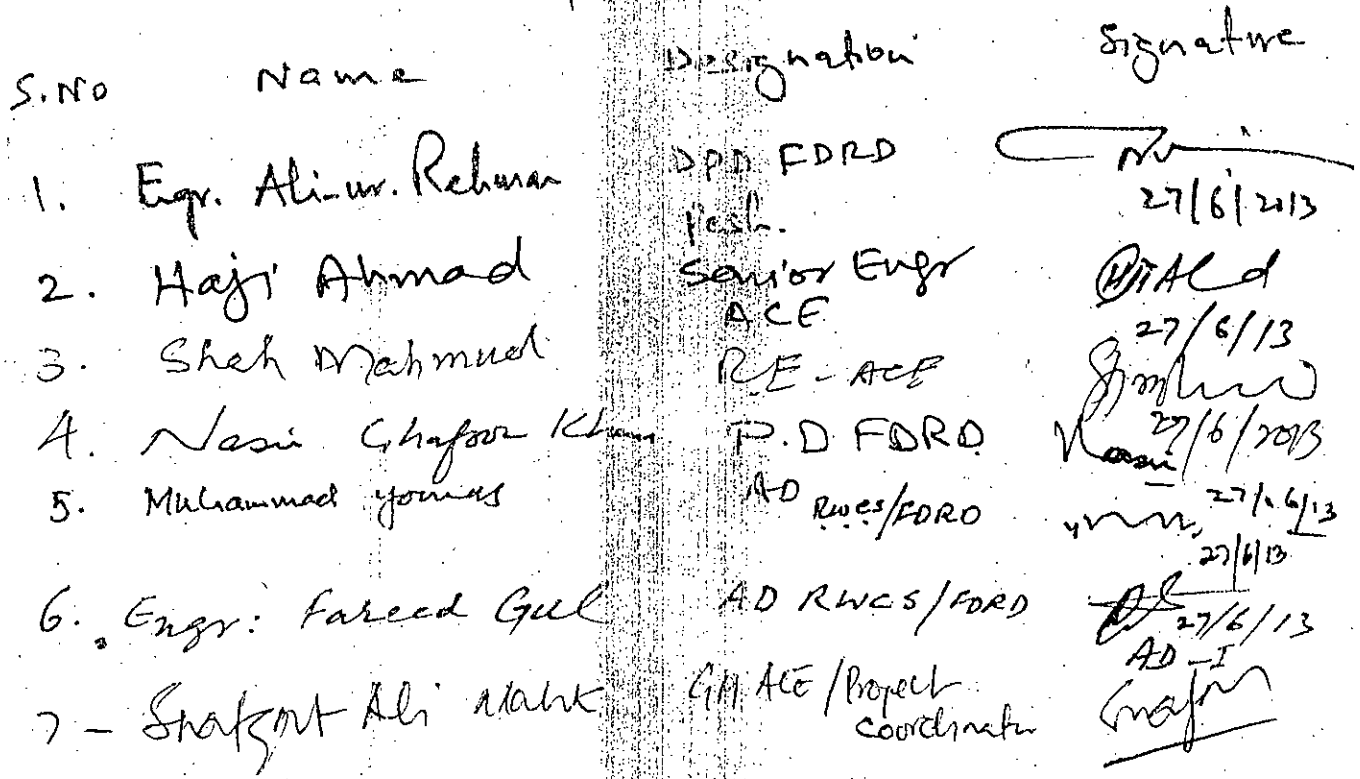 S.No Name Designation Signature
1. Engr. Ali-ur-Rehman DPD FDRD
Pesh.
27/6/2013
2. Haji Ahmad Senior Engr
ACE
27/6/13
3. Shah Mahmud RE - ACE
27/6/2013
4. Nasir Ghafoor Khan P.D FDRD Nasir
27/06/13
5. Muhammad Younas AD RWCS/FDRD
27/6/13
6. Engr: Fareed Gul AD RWCS/FDRD
27/6/13
AD-I
7 - Shafqat Ali Malik GM ACE / Project
Coordinator